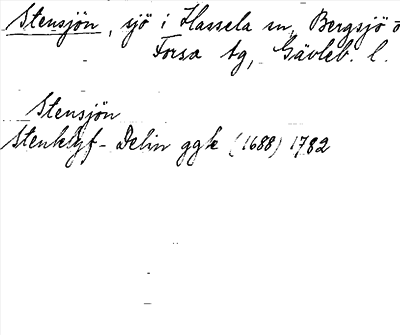 Stensjön, sjö i Hassela sn, Bergsjö o
Forsa tg, Gävleb. l.
Stensjön
Stenklyf- Delin ggk (1688) 1782